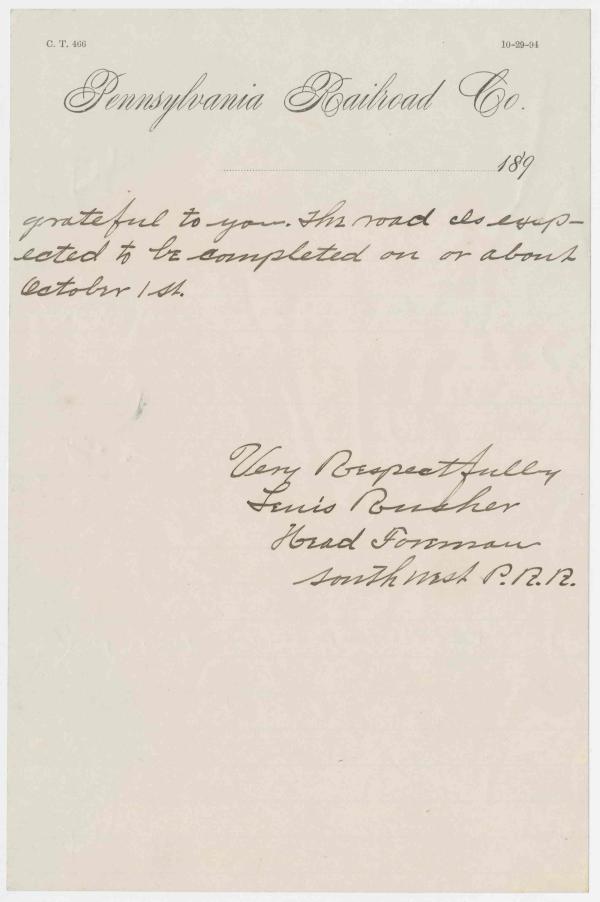 C. T. 466
10-29-94
Pennsylvania Railroad Co.
189
grateful to you. The road is exsp-
ected to be completed on or about
October 1st.
Very Respectfully
Lewis
Head Foreman
South West P. R. R.